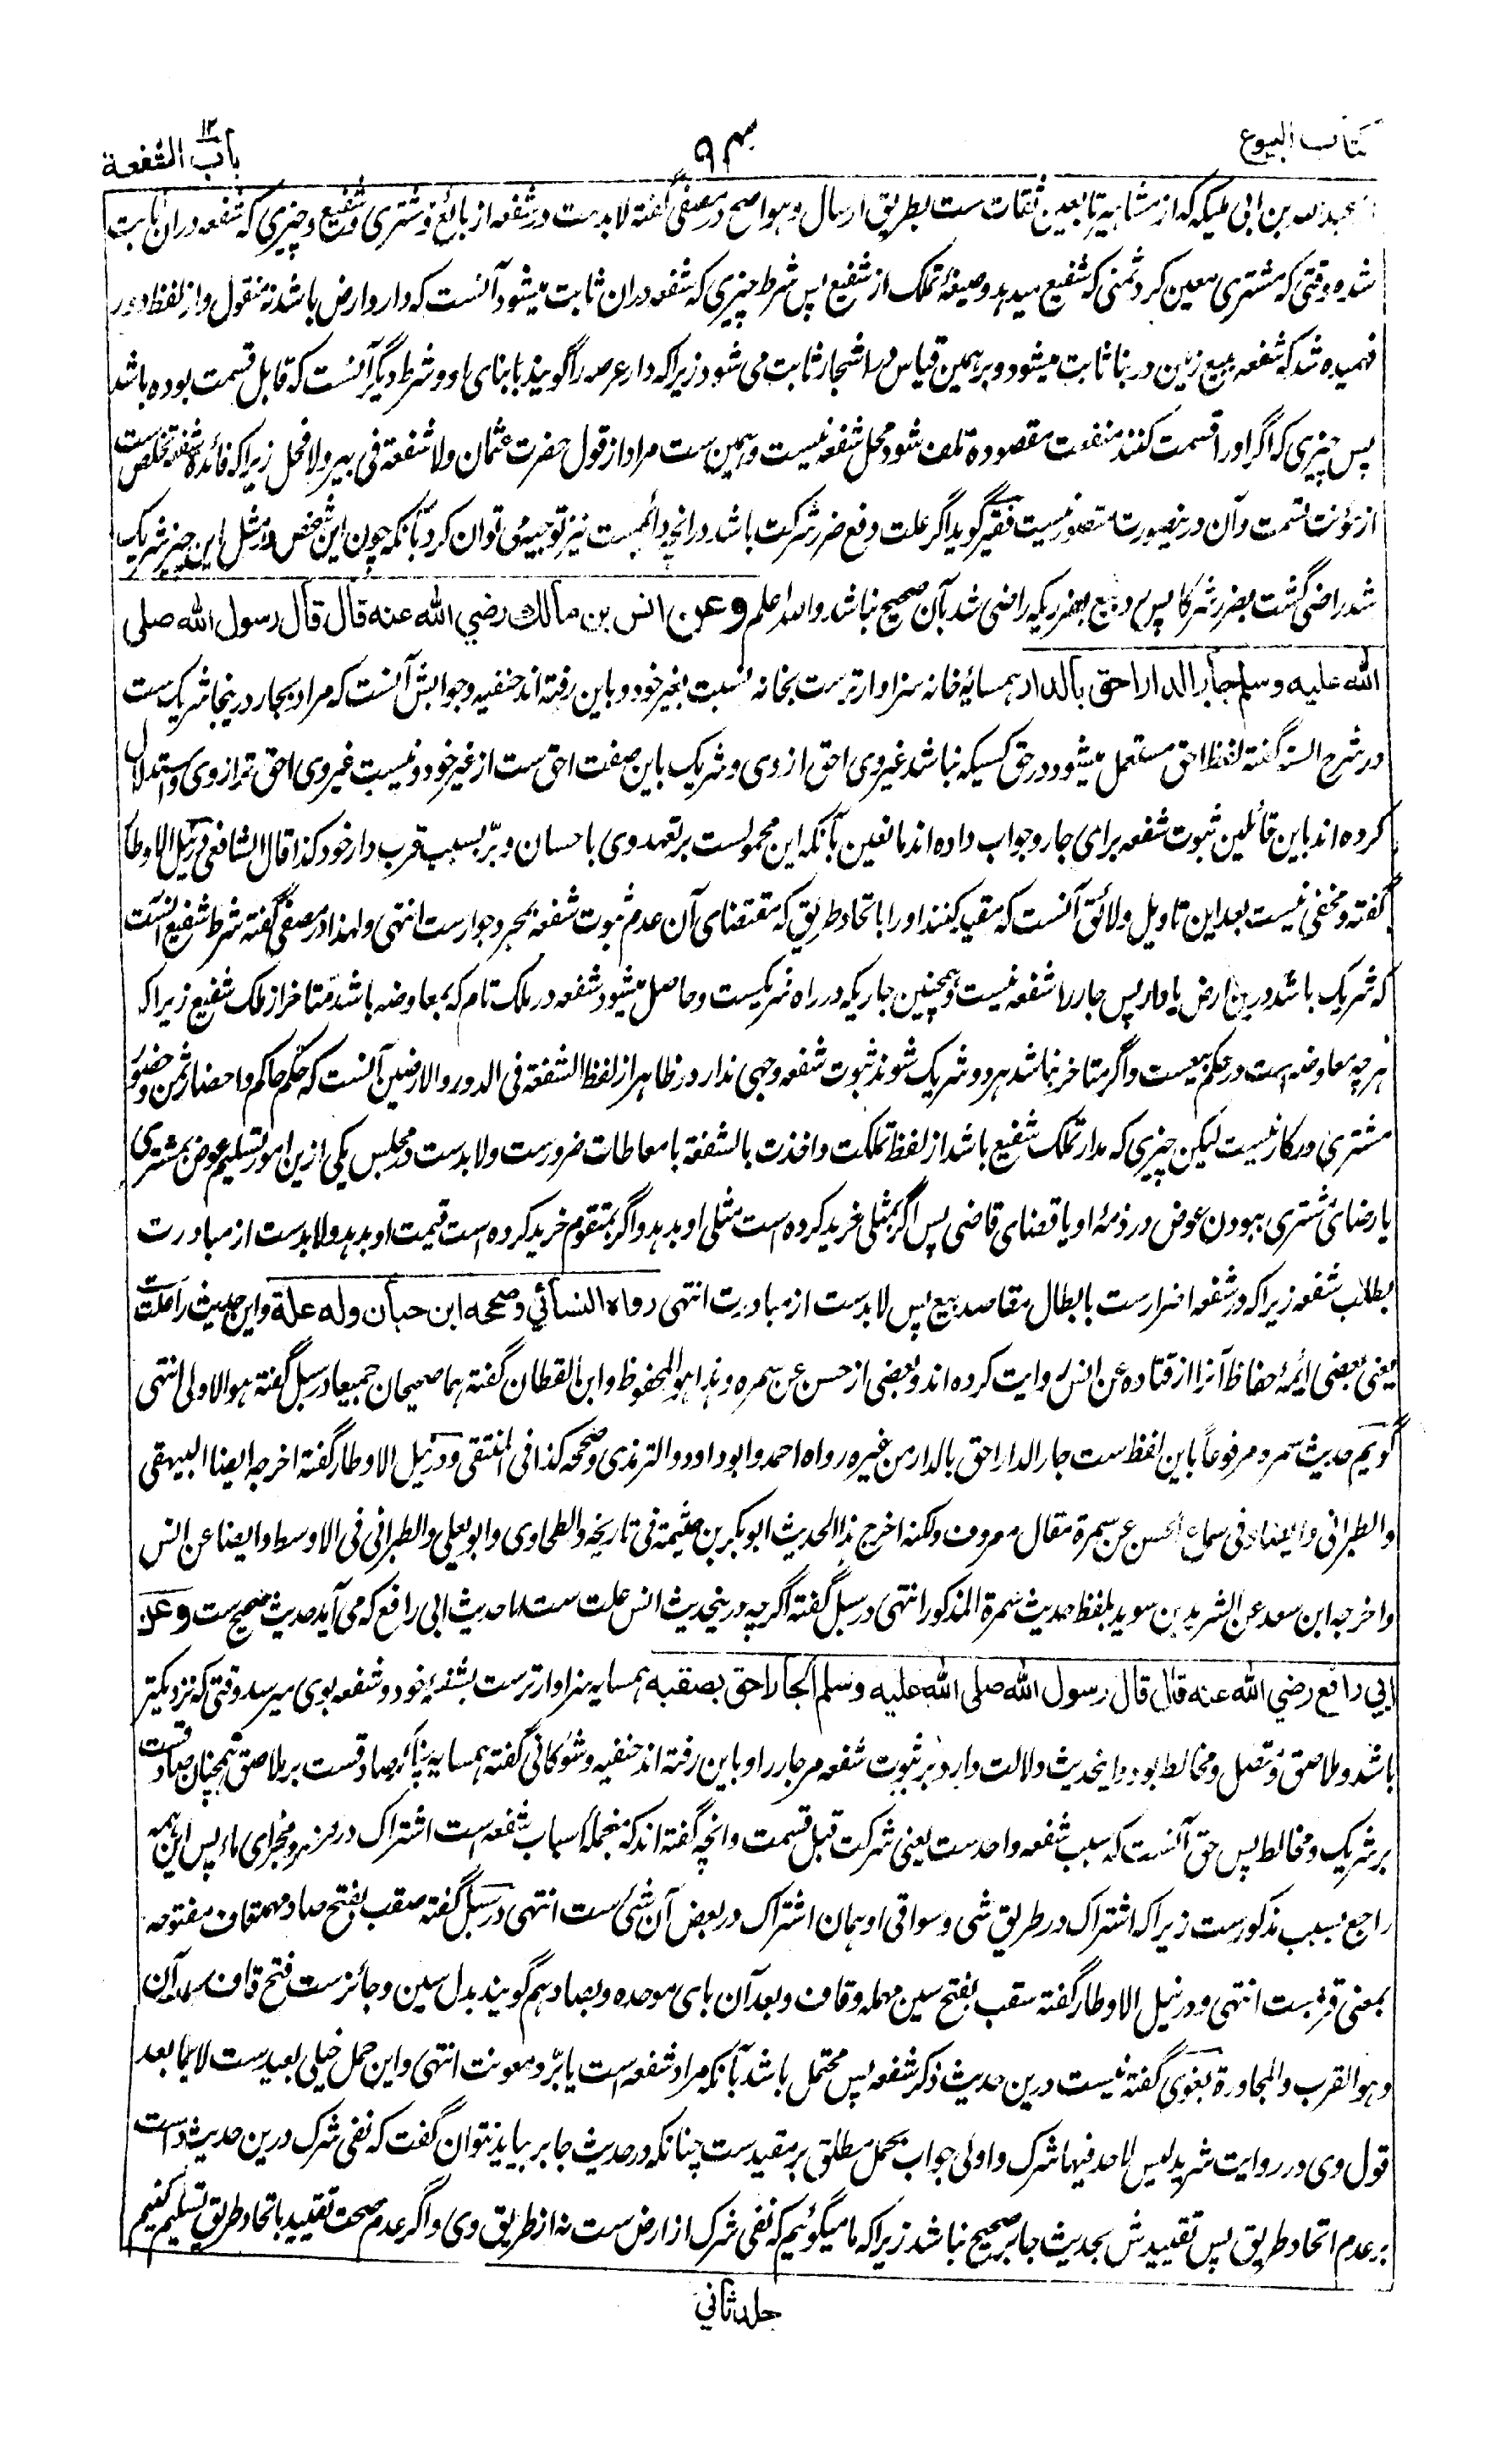 کتاب البیوع
۹۴
باب الشفعة
۱۲
عبدالله بن ابی ملیکه که از مشاهیر تابعین ثقات ست بطریق ارسال و هو اصح در مصفی گفته لابدست در شفعه از بائع و مشتری و شفیع و چیزی که شفعه دران ثابت
شده وقتی که مشتری معین کرد ثمنی که شفیع میدهد و صیغهٔ تملک از شفیع پس شرط چیزی که شفعه دران ثابت میشود آنست که دار و ارض باشد نه منقول و از لفظ دور
فهمیده شد که شفعه ببیع زمین در بنا ثابت میشود و برهمین قیاس در اشجار ثابت می شود زیراکه دار عرصه را گویند با بنای او و شرط دیگر آنست که قابل قسمت بوده باشد
پس چیزی که اگر اورا قسمت کنند منفعت مقصوده تلف شود محل شفعه نیست و همین ست مراد از قول حضرت عثمان ولا شفعة فی بیر ولا فحل زیراکه فائدهٔ شفعه تخلص ست
از مؤنت قسمت و آن درینصورت متصور نیست فقیر گوید اگر علت دفع ضرر شرکت باشد در انچه دائمیست نیز توجیهی توان کرد بآنکه چون این شخص در مثل این چیز شریک
شد راضی گشت بضرر شرکا پس در بیع بضرریکه راضی شد بآن صحیح نباشد والله اعلم وعن انس بن مالك رضي الله عنه قال قال رسول الله صلى
الله عليه وسلم جار الدار احق بالدار همسایهٔ خانه سزاوارترست بخانه نسبت بغیر خود و باین رفته اند حنفیه و جوابش آنست که مراد بجار درینجا شریک ست
در شرح السنه گفته لفظ احق مستعمل میشود در حق کسیکه نباشد غیر وی احق از وی و شریک باین صفت احق ست از غیر خود و نیست غیر وی احق تر از وی و استدلال
کرده اند باین قائلین ثبوت شفعه برای جار و جواب داده اند مانعین بآنکه این محمولست بر تعهد وی باحسان و برّ بسبب قرب دار خود کذا قال الشافعی در نیل الاوطار
گفته و مخفی نیست بعد این تاویل و لائق آنست که مقید کنند اورا باتحاد طریق که مقتضای آن عدم ثبوت شفعه بمجرد جوارست انتهی ولهذا در مصفی گفته شرط شفیع آنست
که شریک باشد درین ارض یا دار پس جار را شفعه نیست و همچنین جاریکه در راه شریکست و حاصل میشود شفعه در ملک تام که بمعاوضه باشد متاخر از ملک شفیع زیراکه
هرچه معاوضه است در حکم بیعست و اگر متاخر نباشد هر دو شریک شوند ثبوت شفعه وجهی ندارد و ظاهر از لفظ الشفعة فی الدور والارضین آنست که حکم حاکم و احضار ثمن و حضور
مشتری درکار نیست لیکن چیزی که مدار تملک شفیع باشد از لفظ تملکت و اخذت بالشفعة یا معاطات ضرورست و لابدست در مجلس یکی ازین امور تسلیم عوض بمشتری
یا رضای مشتری ببودن عوض در ذمهٔ او یا قضای قاضی پس اگر بمثلی خرید کرده است مثلی او بدهد و اگر بمتقوم خرید کرده است قیمت او بدهد و لابدست از مبادرت
بطلب شفعه زیراکه در شفعه اضرارست بابطال مقاصد بیع پس لابدست از مبادرت انتهی رواه النسائي وصححه ابن حبان وله علة واین حدیث را علت ست
یعنی بعضی ائمهٔ حفاظ آنرا از قتاده عن انس روایت کرده اند و بعضی از حسن عن سمره و هذا هو المحفوظ و ابن القطان گفته هما صحیحان جمیعا در سبل گفته هو الاولی انتهی
گویم حدیث سمره مرفوعاً باین لفظ ست جار الدار احق بالدار من غیره رواه احمد و ابوداود و الترمذی و صححه کذا فی المنتقی و در نیل الاوطار گفته اخرجه ایضا البیهقی
والطبرانی والضیاء وفی سماع الحسن عن سمرة مقال معروف ولکنه اخرج هذا الحدیث ابوبکر بن خیثمة فی تاریخه والطحاوی وابو یعلی والطبرانی فی الاوسط والضیا عن انس
واخرجه ابن سعد عن الشرید بن سوید بلفظ حدیث سمرة المذکور انتهی در سبل گفته اگرچه درینحدیث انس علت ست اما حدیث ابی رافع که می آید حدیث صحیح ست وعن
ابي رافع رضي الله عنه قال قال رسول الله صلى الله عليه وسلم الجار احق بصقبه همسایه سزاوارترست بشفعهٔ خود و شفعه بوی میرسد وقتی که نزدیکتر
باشد و ملاصق و متصل و مخالط بود و اینحدیث دلالت دارد بر ثبوت شفعه مر جار را و باین رفته اند حنفیه و شوکانی گفته همسایه چنانکه صادقست بر ملاصق همچنان صادقست
بر شریک و مخالط پس حق آنست که سبب شفعه واحدست یعنی شرکت قبل قسمت و انچه گفته اند که منجملهٔ اسباب شفعه است اشتراک در نهر و مجرای ماء پس این همه
راجع بسبب مذکورست زیراکه اشتراک در طریق شی و سواقی او همان اشتراک در بعض آن شئ ست انتهی در سبل گفته صقب بفتح صاد مهمله و قاف مفتوحه
بمعنی قربست انتهی و در نیل الاوطار گفته سقب بفتح سین مهمله و قاف و بعد آن بای موحده و بصاد هم گویند بدل سین و جائزست فتح قاف و سکون آن
وهو القرب والمجاورة بغوی گفته نیست درین حدیث ذکر شفعه پس محتمل باشد بآنکه مراد شفعه است یا برّ و معونت انتهی و این حمل خیلی بعیدست لاسیما بعد
قول وی در روایت شرید لیس لاحد فیها شرک و اولی جواب بحمل مطلق بر مقیدست چنانکه در حدیث جابر بیاید نتوان گفت که نفی شرک درین حدیث دال است
بر عدم اتحاد طریق پس تقییدش بحدیث جابر صحیح نباشد زیراکه ما میگوئیم که نفی شرک از ارض ست نه از طریق وی و اگر عدم صحت تقیید باتحاد طریق تسلیم کنیم
جلد ثاني